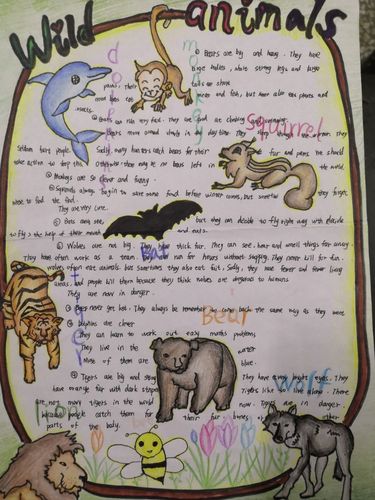 Wild animals
① Bears are big and heavy. They have
huge bodies, white strong legs and large
paws, their tails are short.
most bears eat meat and fish, but some also eat plants and
insects.
② Bears can run very fast. They are good at climbing and swimming.
Bears move around slowly in the day time. They sleep
Seldom hurt people. Sadly, many hunters catch bears for their fur and paws. We should
take action to stop this. Otherwise, there may be no bears left in the world.
③ Monkeys are so clever and funny.
④ Squirrels always begin to save some food before winter comes, but sometimes they forget
where to find the food.
They are very cute.
⑤ Bats but they can decide to fly right way with
to fly the help of their mouth and ears.
⑥ Wolves are not big. They have thick fur. They can see, hear and smell things far away.
They have often work as a team. run for hours without stopping. They never kill for fun.
wolves often eat animals, but sometimes they also eat fruit. Sadly, they have fewer and fewer living
areas, and people kill them because they think wolves are dangerous to humans.
They are now in danger.
⑦ Bees never get lost. They always be remember to come back the same way as they were.
⑧ Dolphins are clever
They can learn to work out easy maths problems.
They live in the water
Most of them are blue
⑨ Tigers are big and strong They have very bright eyes. They
have orange fur with dark stripes Tigers like to live alone. There
are not many tigers in the world now. Tigers are in danger.
because people catch them for their fur, bones, or other
parts of the body.
dolphins
monkey
Squirrel
Bat
tiger
Bear
wolf
lion
bee